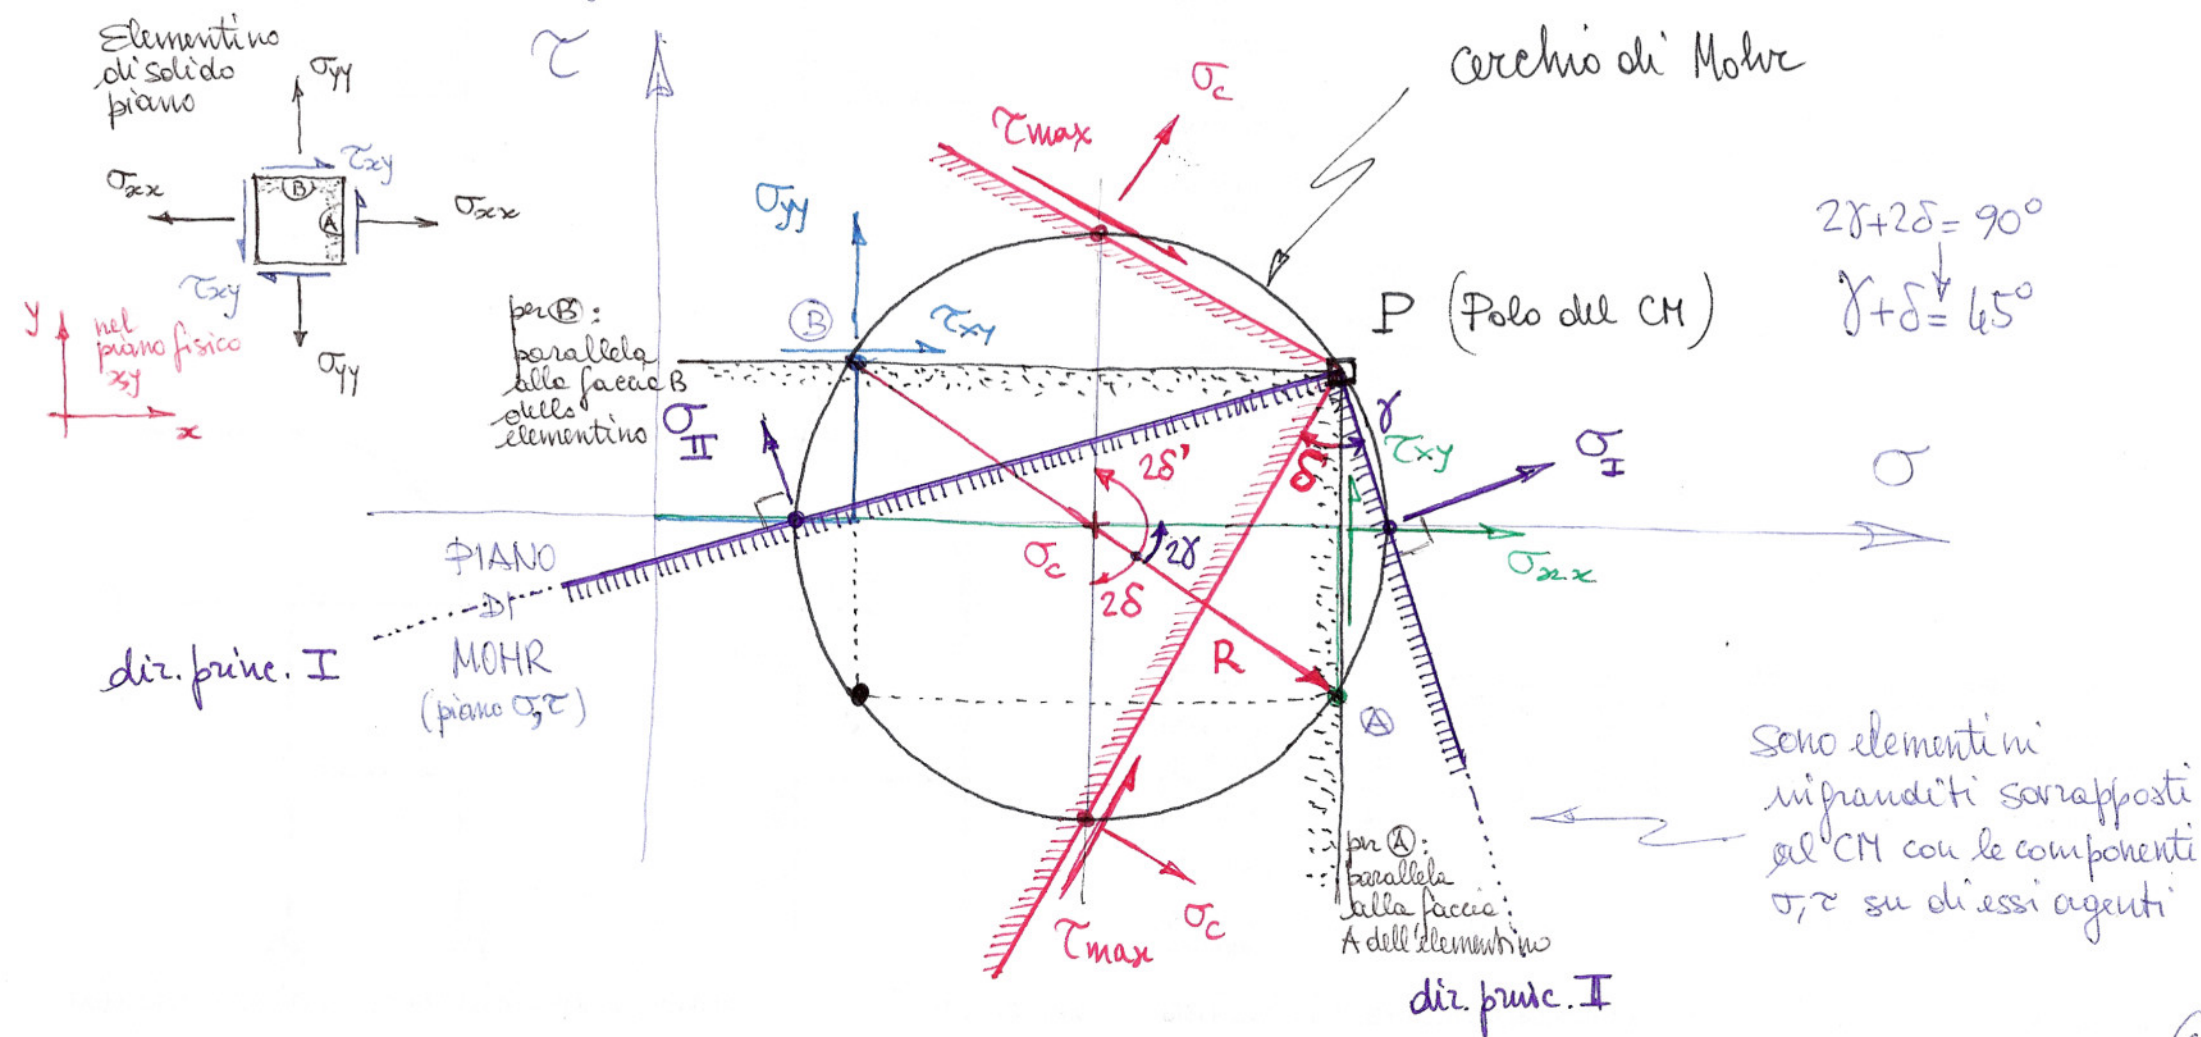 Elementino
di solido
piano
σyy
σxx
B
A
τxy
σxx
τxy
σyy
y
nel
piano fisico
x,y
x
τ
cerchio di Mohr
σc
τmax
σyy
B
τxy
per B:
parallela
alla faccia B
dello
elementino
P (Polo del CM)
2γ+2δ = 90°
γ+δ = 45°
σII
γ
τxy
σI
σ
δ
2δ'
σc
2γ
2δ
σxx
R
A
PIANO
DI
MOHR
(piano σ,τ)
dir. princ. I
sono elementini
ingranditi sovrapposti
al CM con le componenti
σ,τ su di essi agenti
per A:
parallela
alla faccia
A dell'elementino
σc
τmax
dir. princ. II